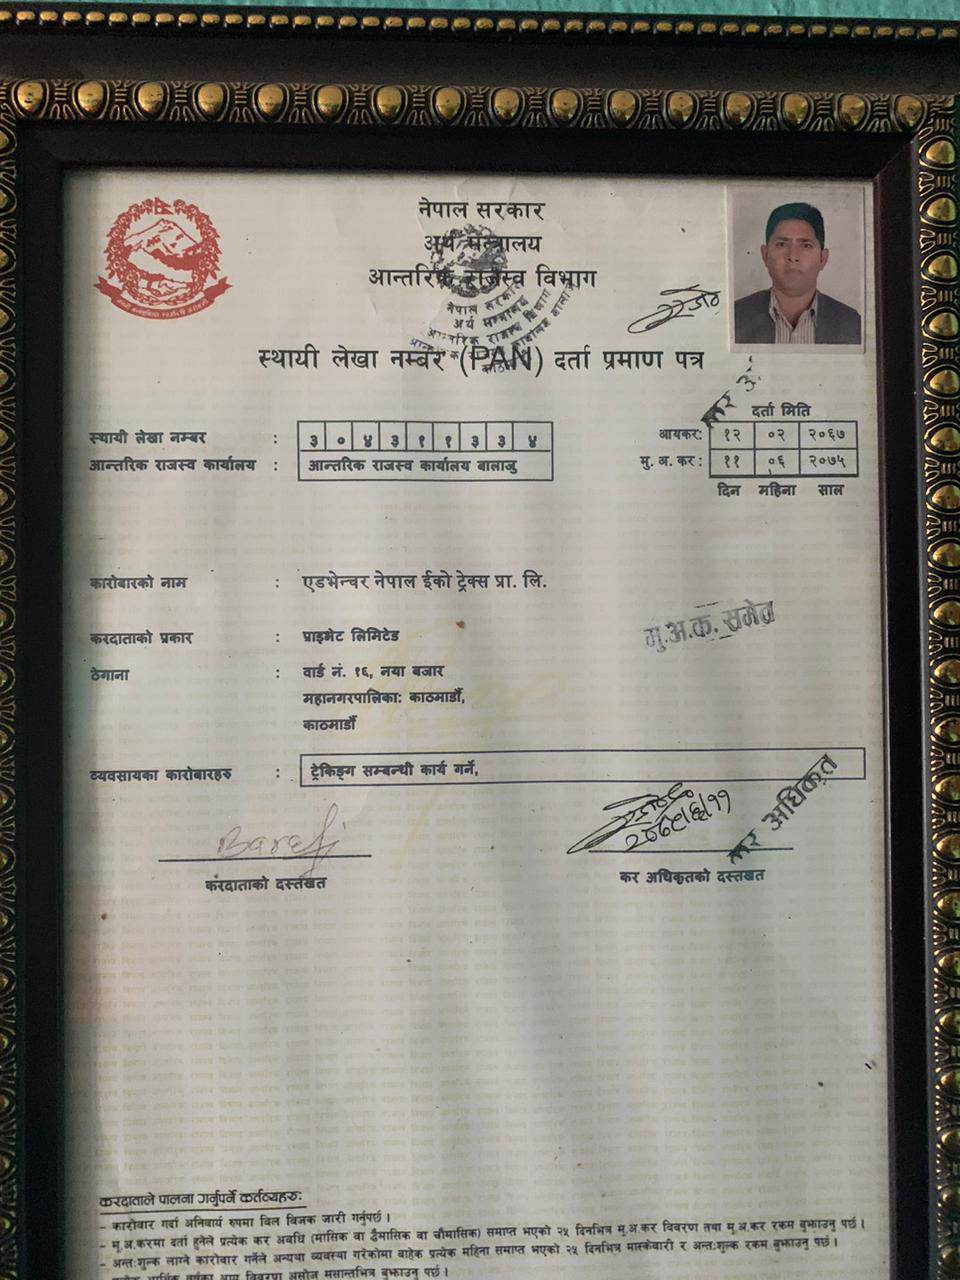 नेपाल सरकार
अर्थ मन्त्रालय
आन्तरिक राजस्व विभाग
नेपाल सरकार
अर्थ मन्त्रालय
आन्तरिक राजस्व विभाग
स्थायी लेखा नम्बर (PAN) दर्ता प्रमाण पत्र
कर अ
दर्ता मिति
स्थायी लेखा नम्बर : ३ ० ४ ३ १ १ ३ ३ ४ आयकर: १२ ०२ २०६७
आन्तरिक राजस्व कार्यालय : आन्तरिक राजस्व कार्यालय बालाजु मु. अ. कर : ११ ०६ २०७५
दिन महिना साल
कारोबारको नाम : एडभेन्चर नेपाल ईको ट्रेक्स प्रा. लि.
मु.अ.क. समेत
करदाताको प्रकार : प्राइभेट लिमिटेड
ठेगाना : वार्ड नं. १६, नया बजार
महानगरपालिका: काठमाडौं,
काठमाडौं
व्यवसायका कारोबारहरु : ट्रेकिङ्ग सम्बन्धी कार्य गर्ने,
कर अधिकृत
करदाताको दस्तखत कर अधिकृतको दस्तखत
करदाताले पालना गर्नुपर्ने कर्तव्यहरु:
- कारोवार गर्दा अनिवार्य रुपमा विल विजक जारी गर्नुपर्छ ।
- मू.अ.करमा दर्ता हुनेले प्रत्येक कर अवधि (मासिक वा द्वैमासिक वा चौमासिक) समाप्त भएको २५ दिनभित्र मू.अ.कर विवरण तथा मू.अ.कर रकम बुझाउनु पर्छ ।
- अन्तःशुल्क लाग्ने कारोवार गर्नेले अन्यथा व्यवस्था गरेकोमा बाहेक प्रत्येक महिना समाप्त भएको २५ दिनभित्र मास्केवारी र अन्तःशुल्क रकम बुझाउनु पर्छ ।
आर्थिक वर्षका आय विवरण असोज मसान्तभित्र बुझाउनु पर्छ ।